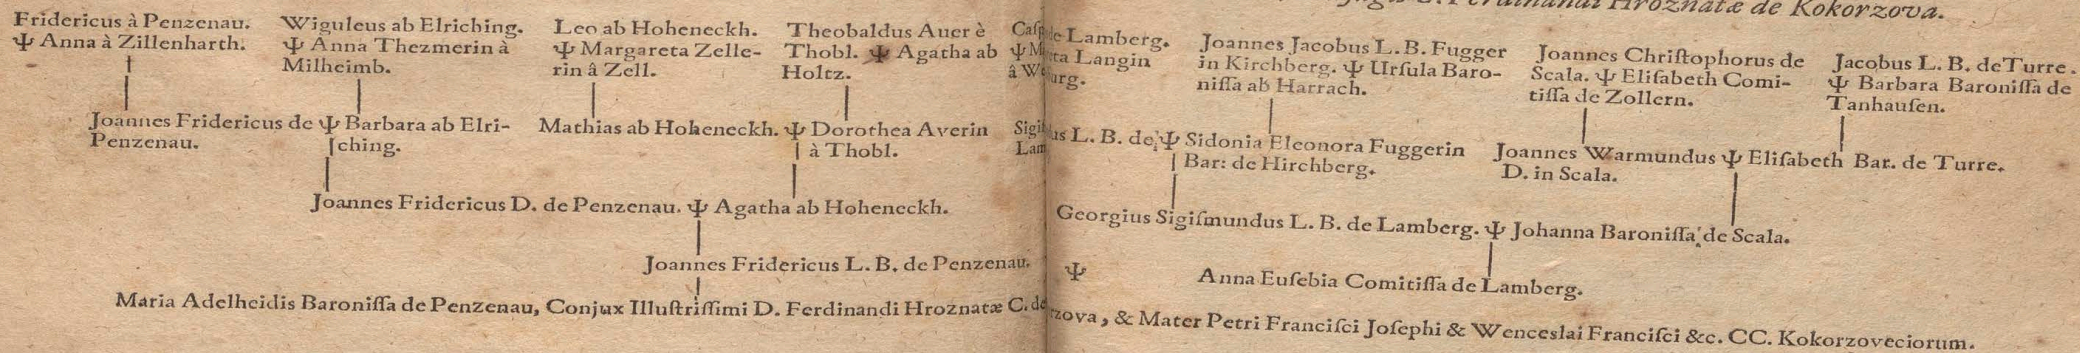 Ferdinandi Hroznatæ de Kokorzova.
Fridericus à Penzenau.
Ψ Anna à Zillenharth.
Wiguleus ab Elriching.
Ψ Anna Thezmerin à
Milheimb.
Leo ab Hoheneckh.
Ψ Margareta Zelle-
rin â Zell.
Theobaldus Auer è
Thobl. Ψ Agatha ab
Holtz.
de Lamberg.
Ψ Langin
â
Joannes Jacobus L. B. Fugger
in Kirchberg. Ψ Urſula Baro-
niſſa ab Harrach.
Joannes Chriſtophorus de
Scala. Ψ Eliſabeth Comi-
tiſſa de Zollern.
Jacobus L. B. de Turre.
Ψ Barbara Baroniſſa de
Tanhauſen.
Joannes Fridericus de Ψ Barbara ab Elri-
Penzenau. ching.
Mathias ab Hoheneckh. Ψ Dorothea Averin
à Thobl.
L. B. de Ψ Sidonia Eleonora Fuggerin
Bar: de Hirchberg.
Joannes Warmundus Ψ Eliſabeth Bar. de Turre.
D. in Scala.
Joannes Fridericus D. de Penzenau. Ψ Agatha ab Hoheneckh.
Georgius Sigiſmundus L. B. de Lamberg. Ψ Johanna Baroniſſa de Scala.
Joannes Fridericus L. B. de Penzenau. Ψ Anna Euſebia Comitiſſa de Lamberg.
Maria Adelheidis Baroniſſa de Penzenau, Conjux Illuſtriſſimi D. Ferdinandi Hroznatæ C. de & Mater Petri Franciſci Joſephi & Wenceslai Franciſci &c. CC. Kokorzoveciorum.